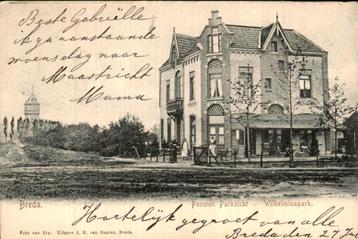 Beste Gabriëlle
ik ga aanstaande
woensdag naar
Maastricht
Mama
Breda.
Pension Parkzicht — Wilhelminapark.
Foto van Erp, Uitgave J. H. van Gunten, Breda.
Hartelijk gegroet van allen
Breda den 27 Juli